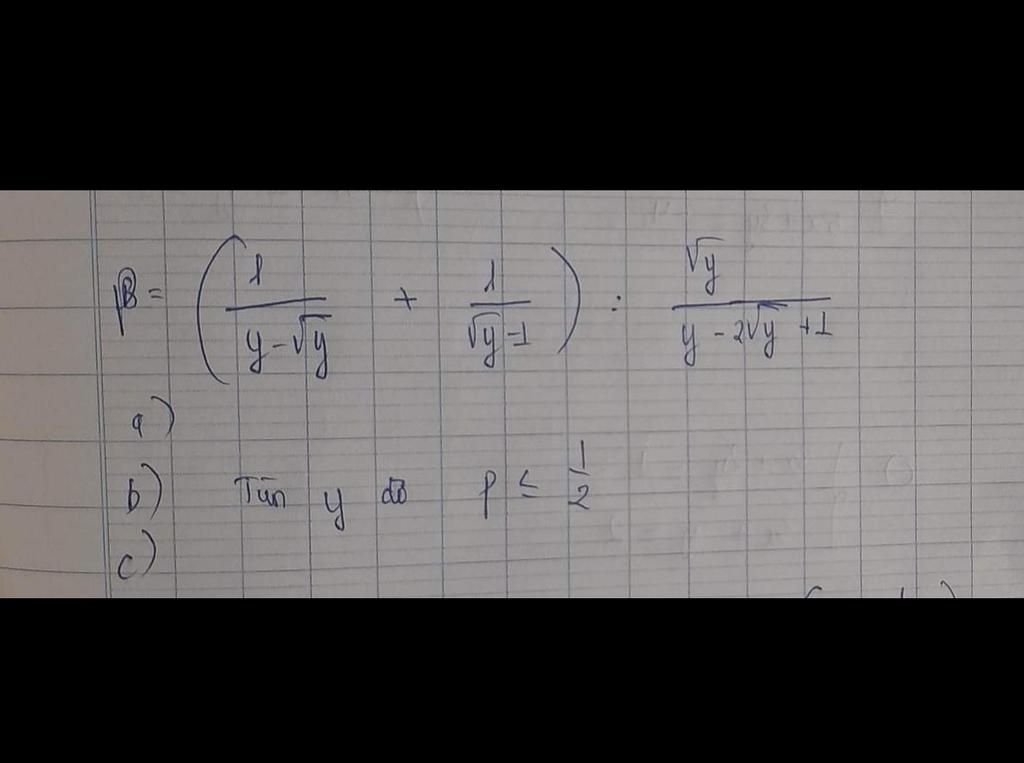 P = ( 1 / (y - √y) + 1 / (√y - 1) ) : √y / (y - 2√y + 1)
a)
b) Tìm y để P ≤ 1/2
c)